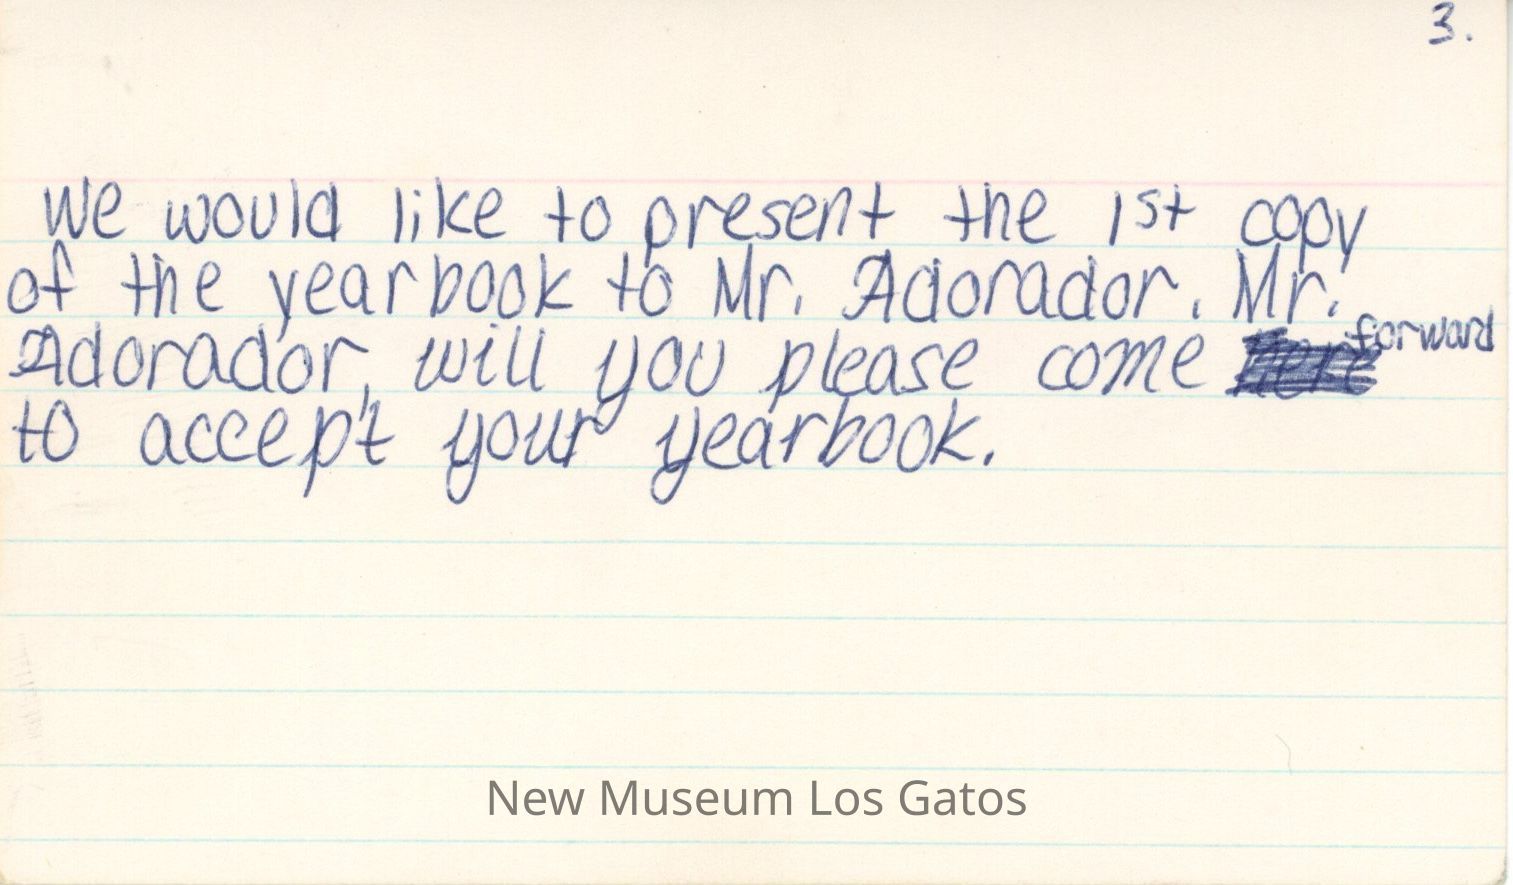 3.
We would like to present the 1st copy
of the yearbook to Mr. Adorador. Mr.
Adorador, will you please come forward
to accept your yearbook.
New Museum Los Gatos